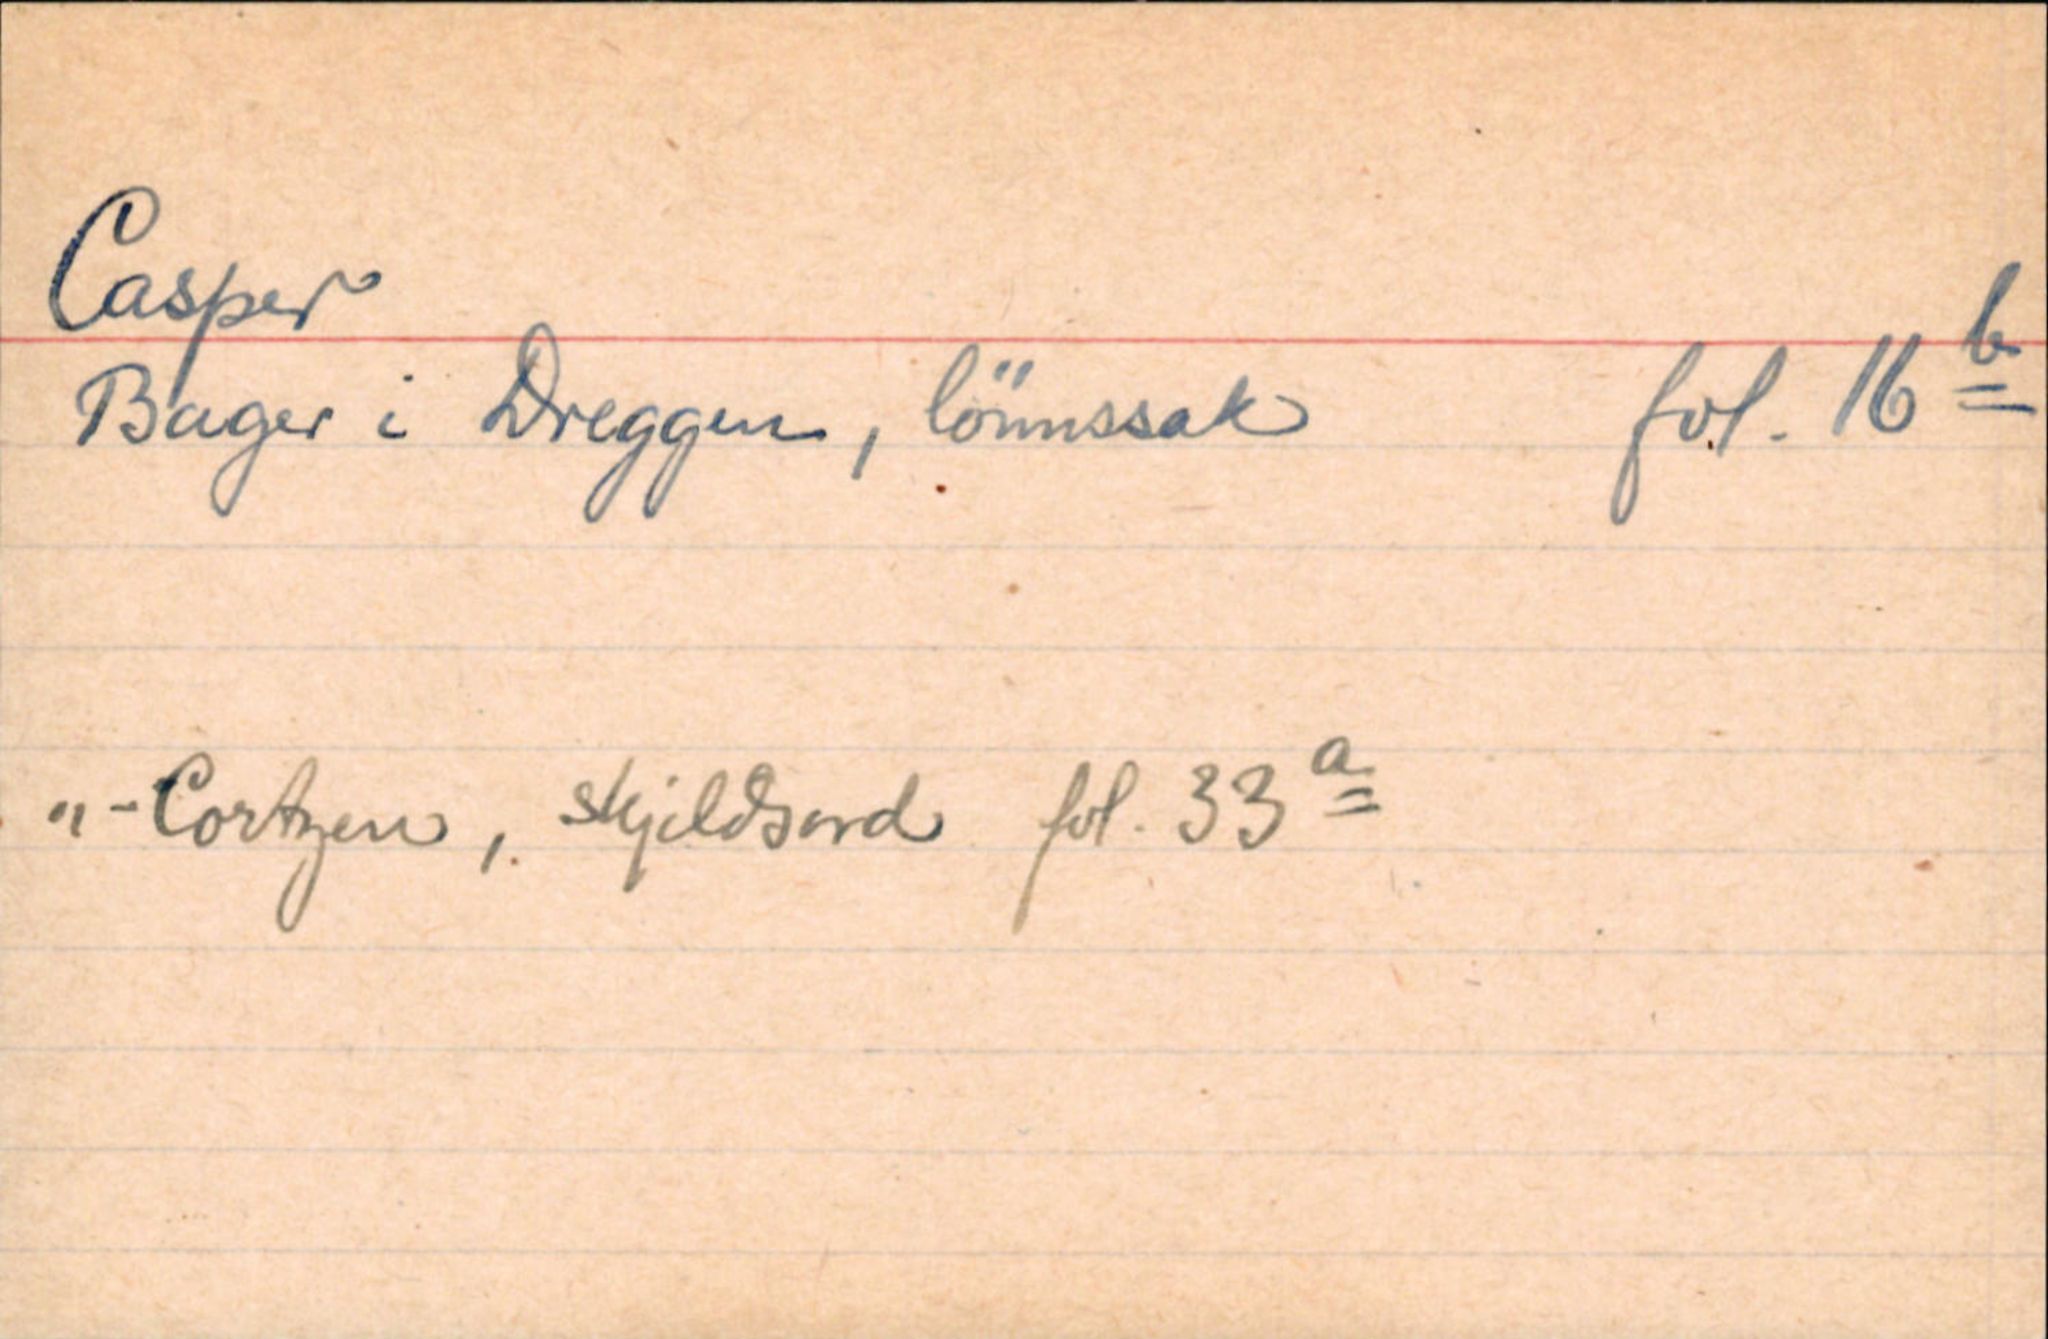 Casper
Bager i Dreggen, lönnssak fol. 16 b
"- Cortzen, skjeldsord fol. 33 a